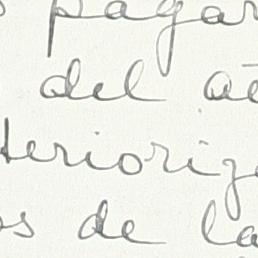 pagar
del
terioriz
os de la